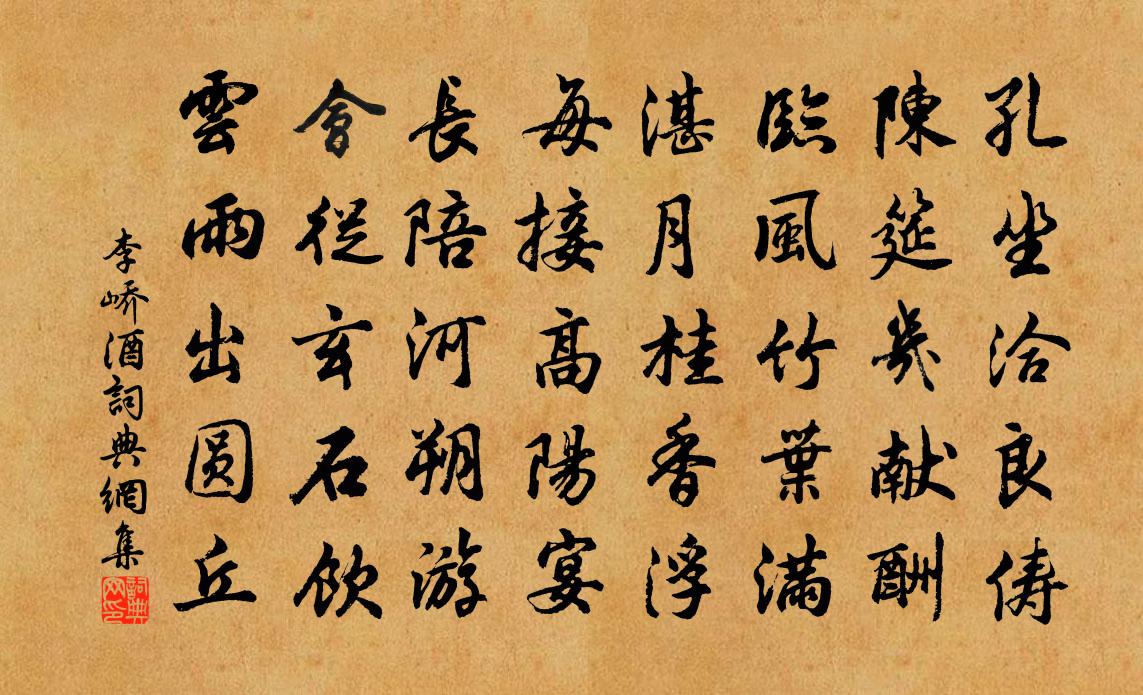 孔坐洽良儔
陳筵幾献酬
臨風竹葉滿
湛月桂香浮
每接高陽宴
長陪河朔游
會從玄石飲
雲雨出圆丘
李嶠酒詞典網集
詞典网印